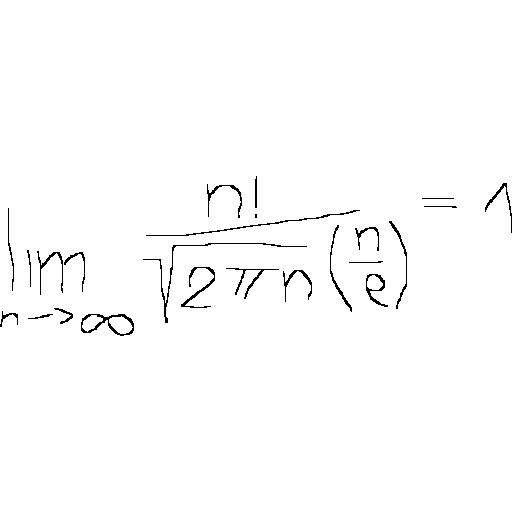 \lim_{n \to \infty} \frac{n!}{\sqrt{2 \pi n} \left( \frac{n}{e} \right)} = 1